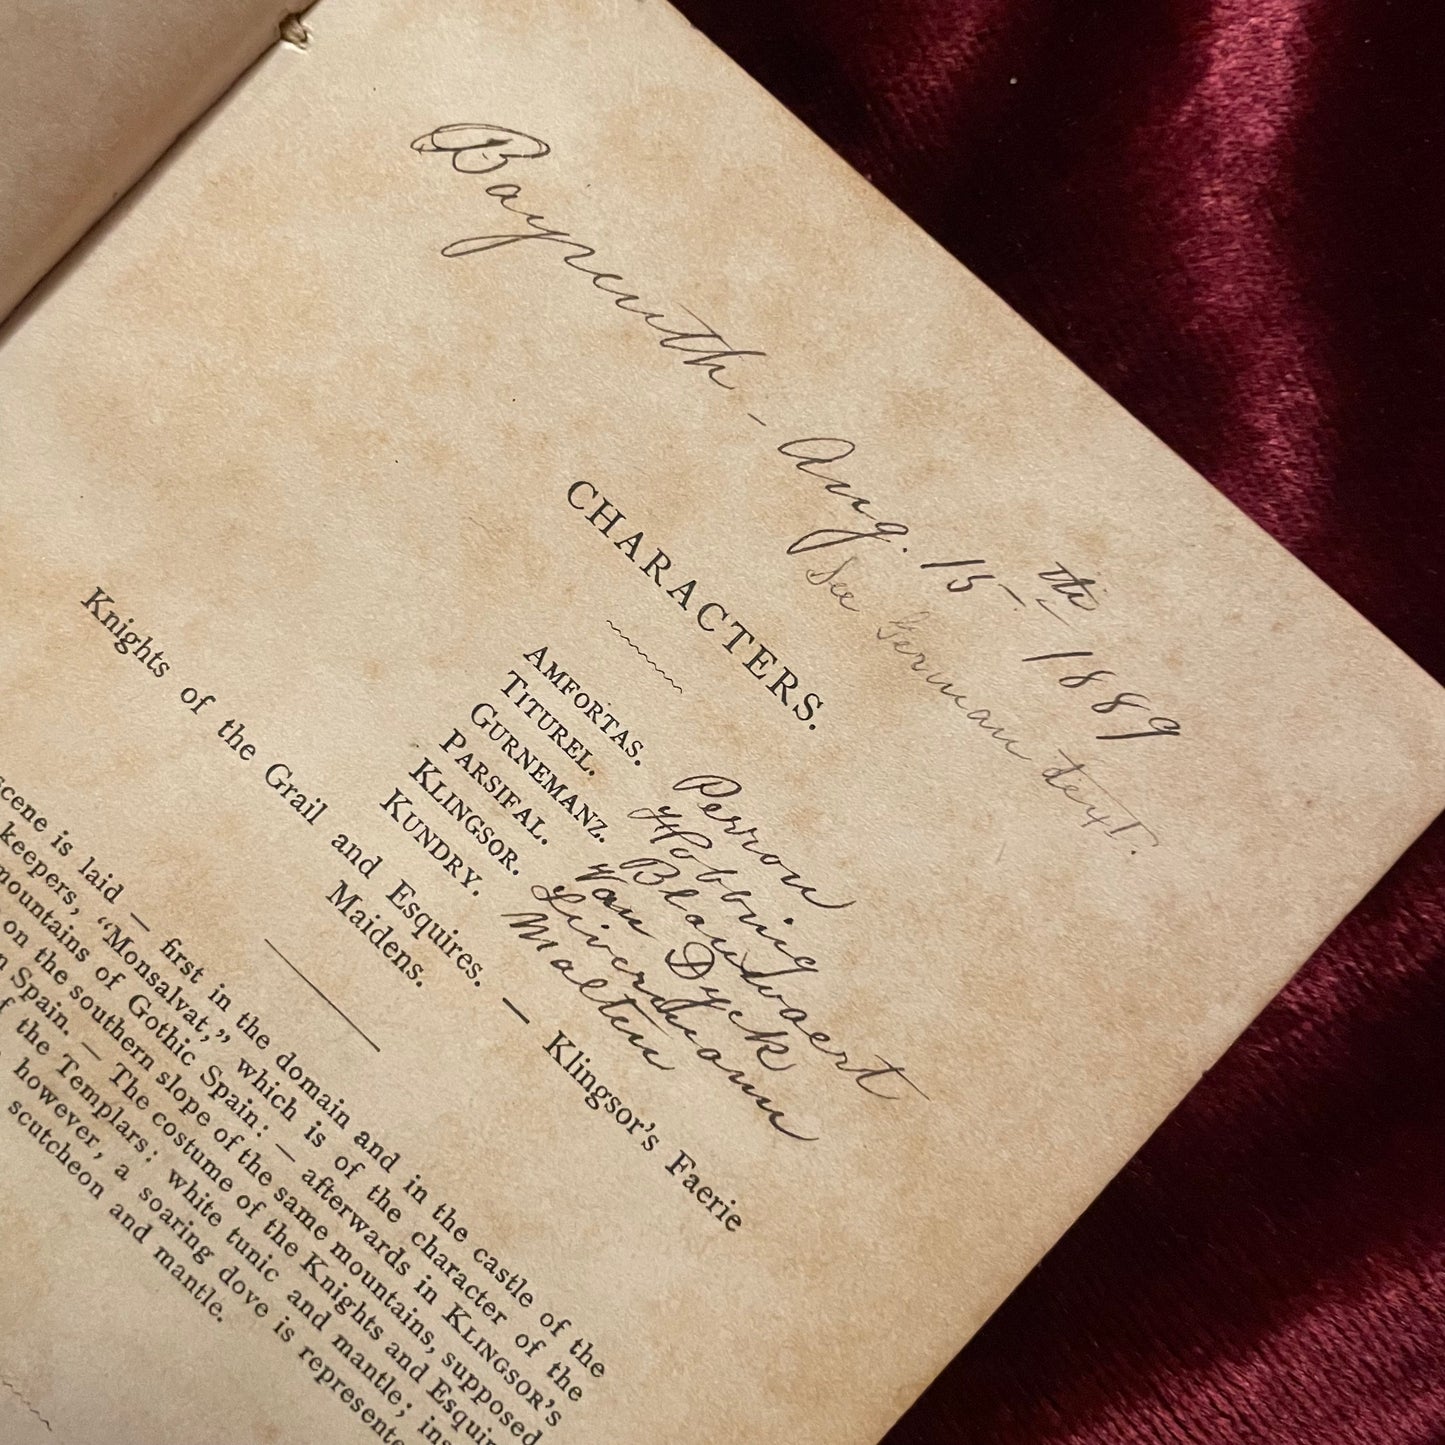 Bayreuth - Aug. 15th 1889
See German text.
CHARACTERS.
AMFORTAS. Perron
TITUREL. Hobbing
GURNEMANZ. Blauwaert
PARSIFAL. Van Dyck
KLINGSOR. Livermann
KUNDRY. Malten
Knights of the Grail and Esquires. — Klingsor's Faerie
Maidens.
scene is laid — first in the domain and in the castle of the
keepers, "Monsalvat," which is of the character of the
mountains of Gothic Spain: — afterwards in KLINGSOR'S
on the southern slope of the same mountains, supposed
Spain. — The costume of the Knights and
the Templars: white tunic and mantle;
however, a soaring dove is
scutcheon and mantle.